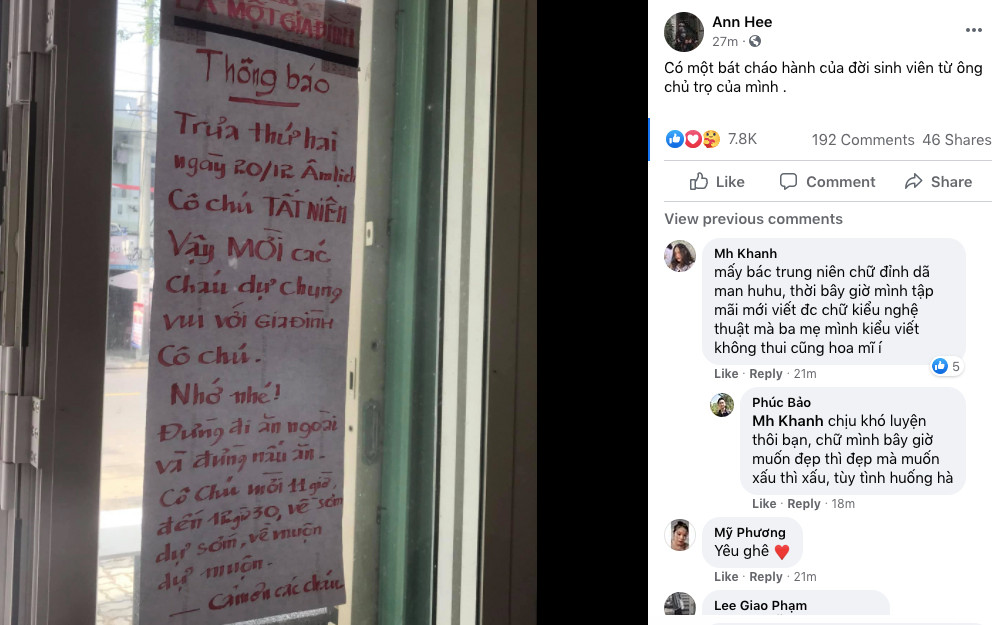 LÀ MỘT GIA ĐÌNH
Thông báo
Trưa thứ hai
ngày 20/12 Âm lịch
Cô chú TẤT NIÊN
Vậy MỜI các
Cháu dự chung
vui với GIA ĐÌNH
Cô chú.
Nhớ nhé!
Đừng đi ăn ngoài
và đừng nấu ăn.
Cô Chú mời 11 giờ,
đến 12 giờ 30, về sớm
dự sớm, về muộn
dự muộn.
— Cảm ơn các cháu
Ann Hee
27m ·
Có một bát cháo hành của đời sinh viên từ ông
chủ trọ của mình .
7.8K 192 Comments 46 Shares
Like Comment Share
View previous comments
Mh Khanh
mấy bác trung niên chữ đỉnh dã
man huhu, thời bây giờ mình tập
mãi mới viết đc chữ kiểu nghệ
thuật mà ba mẹ mình kiểu viết
không thui cũng hoa mĩ í
5
Like · Reply · 21m
Phúc Bảo
Mh Khanh chịu khó luyện
thôi bạn, chữ mình bây giờ
muốn đẹp thì đẹp mà muốn
xấu thì xấu, tùy tình huống hà
Like · Reply · 18m
Mỹ Phương
Yêu ghê ❤️
Like · Reply · 21m
Lee Giao Phạm